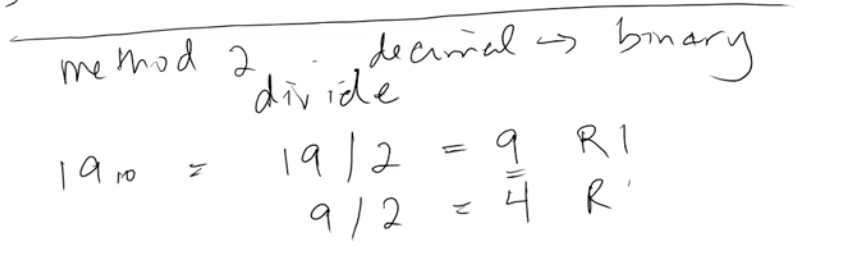 method 2 decimal → binary
divide
19₁₀ = 19/2 = 9 R1
9/2 = 4 R